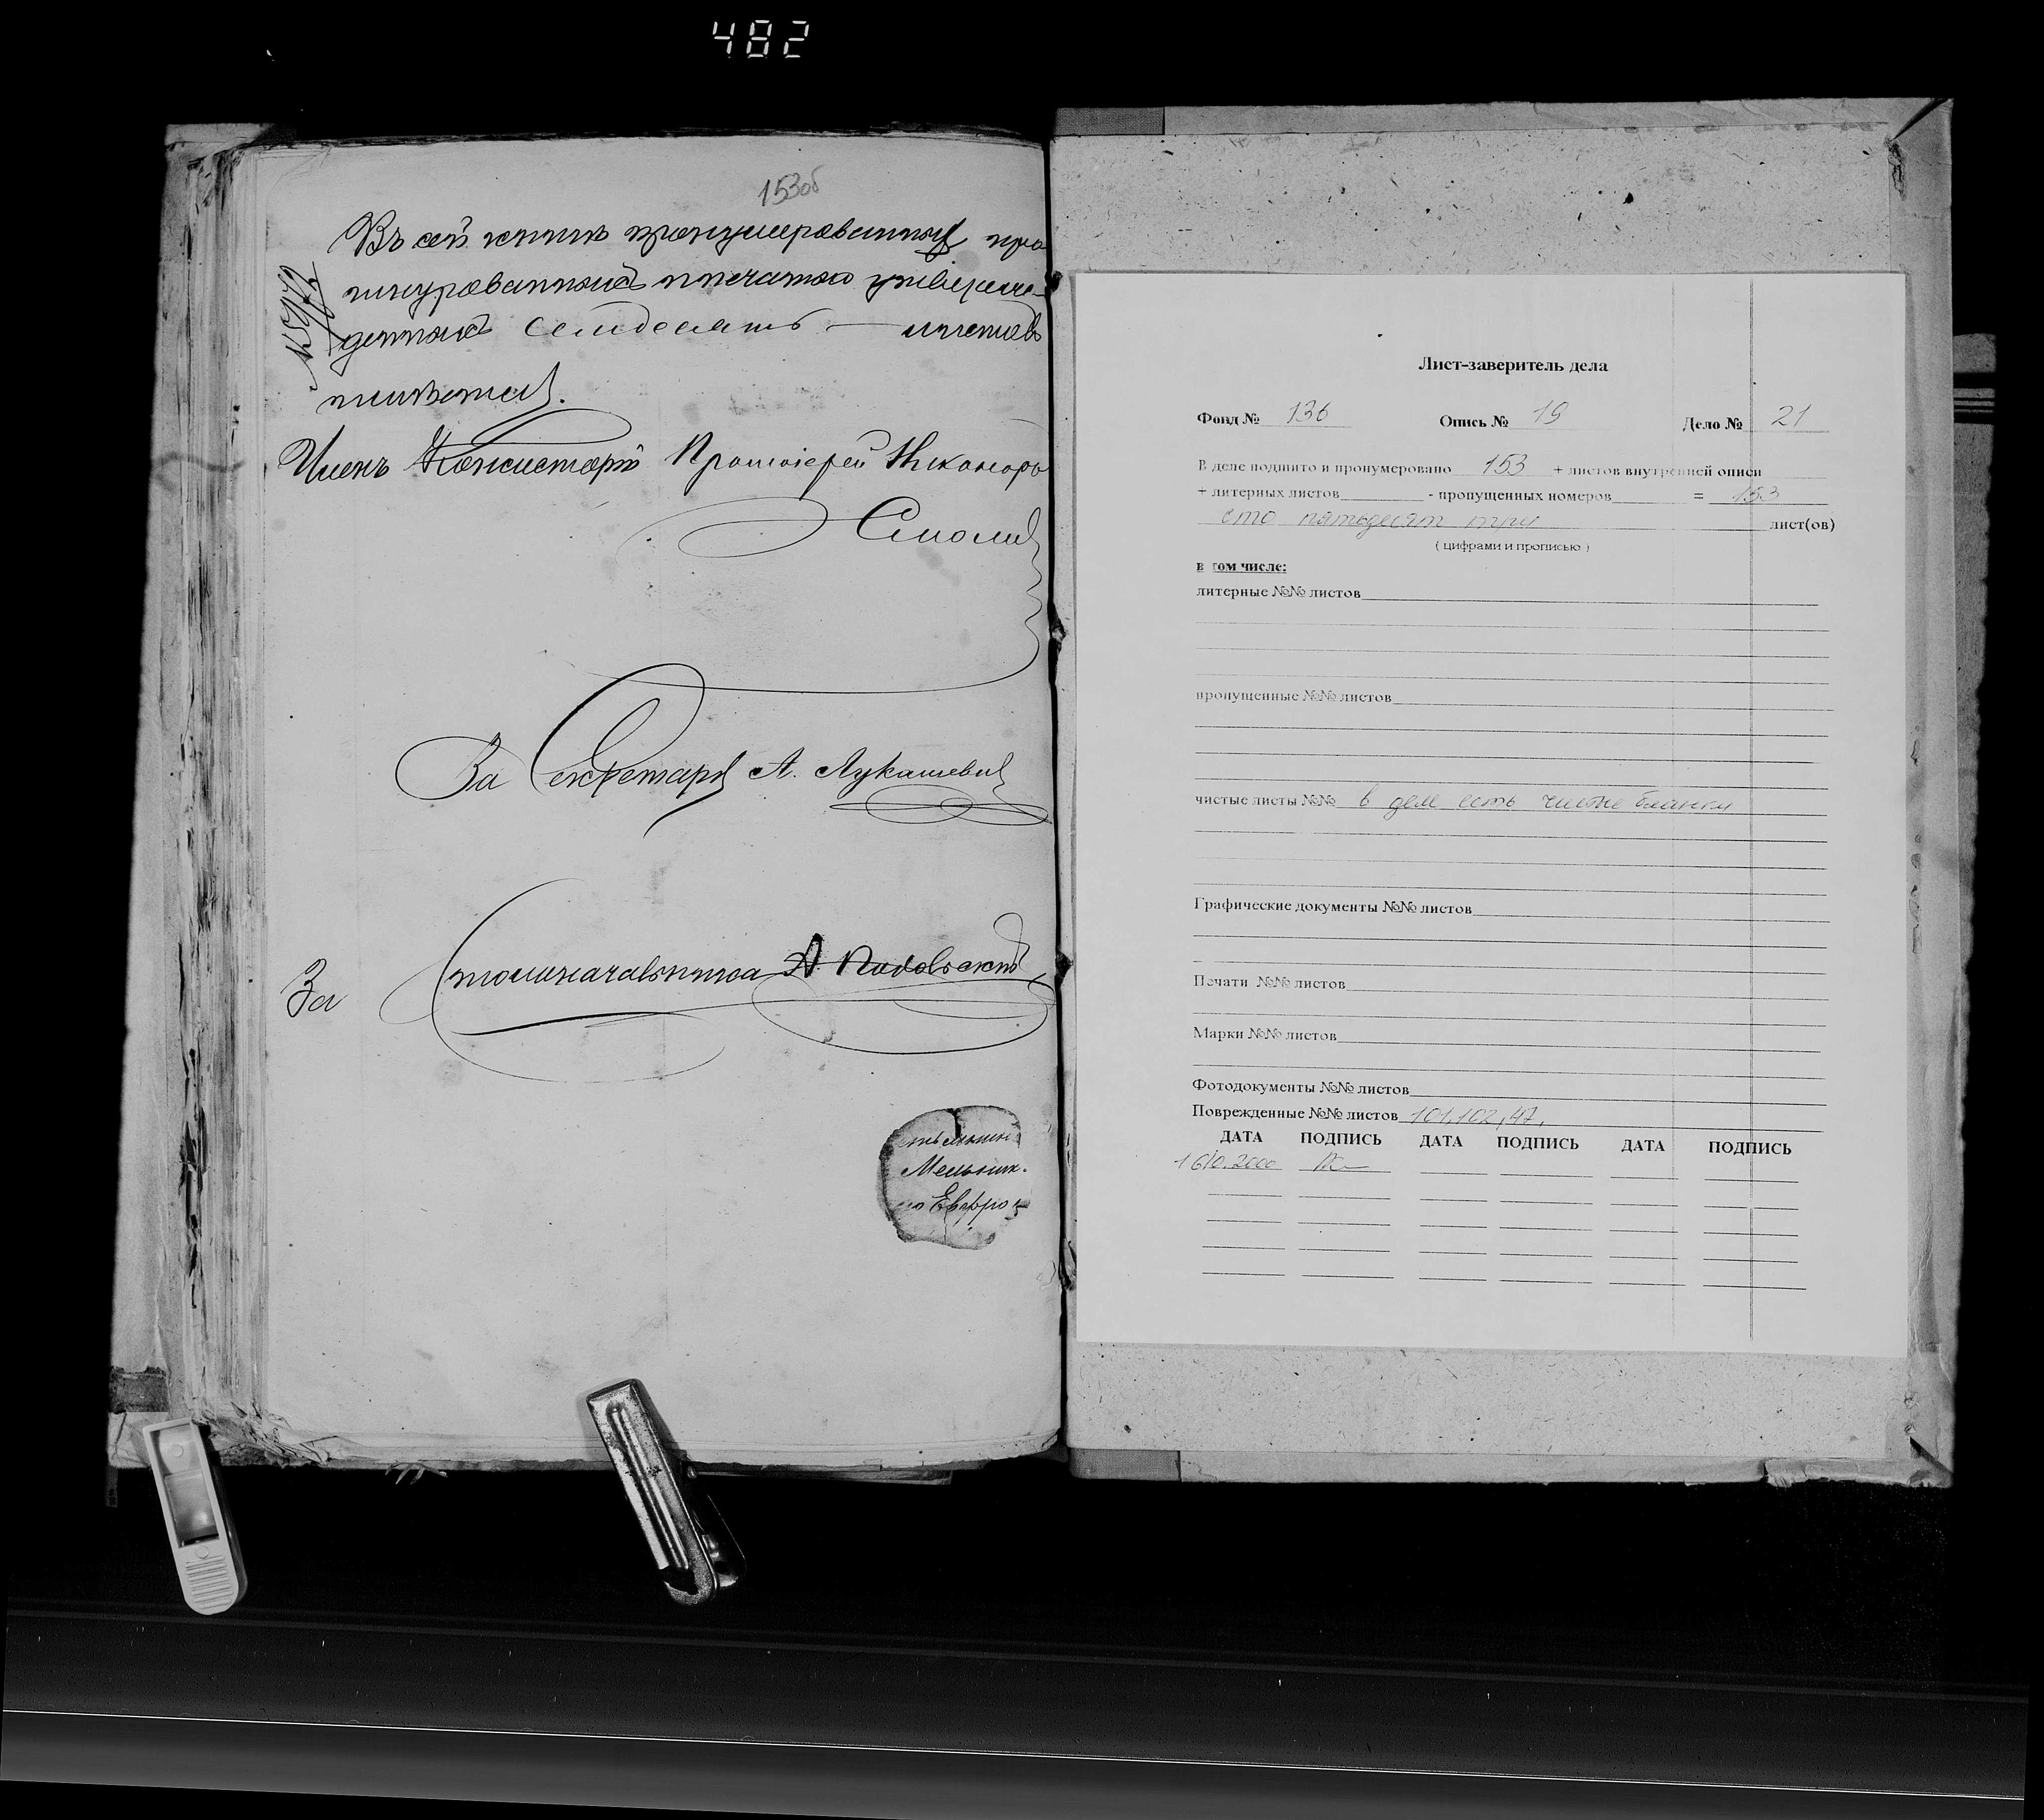 482
153об
Въ сей книгѣ пронумерованныхъ про
шнурованныхъ и печатью утвержде-
денныхъ Семдесятъ — листовъ
имѣется.
Членъ Консисторіи Протоіерей Никаноръ
Смолич
За Секретаря А. Лукашевич
За Столоначальника А. Подольскій
Мельник.
Евфро
Лист-заверитель дела
Фонд № 136 Опись № 19 Дело № 21
В деле подшито и пронумеровано 153 + листов внутренней описи
+ литерных листов - пропущенных номеров = 153
сто пятьдесят три лист(ов)
( цифрами и прописью )
в том числе:
литерные №№ листов
пропущенные №№ листов
чистые листы №№ в деле есть чистые бланки
Графические документы №№ листов
Печати №№ листов
Марки №№ листов
Фотодокументы №№ листов
Поврежденные №№ листов 101, 102, 47.
ДАТА ПОДПИСЬ ДАТА ПОДПИСЬ ДАТА ПОДПИСЬ